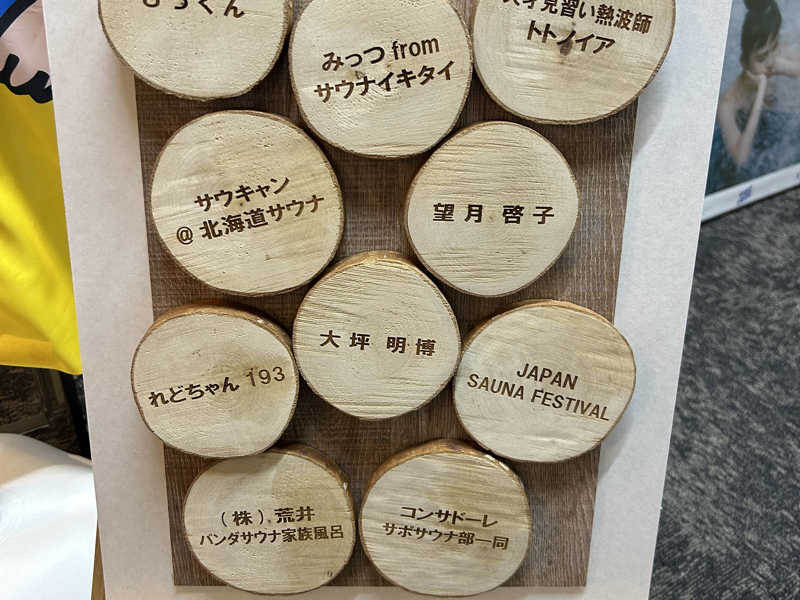 みっつ from
サウナイキタイ
見習い熱波師
トトノイア
サウキャン
@ 北海道サウナ
望月 啓子
大坪 明博
れどちゃん 193
JAPAN
SAUNA FESTIVAL
(株)荒井
パンダサウナ家族風呂
コンサドーレ
サポサウナ部一同